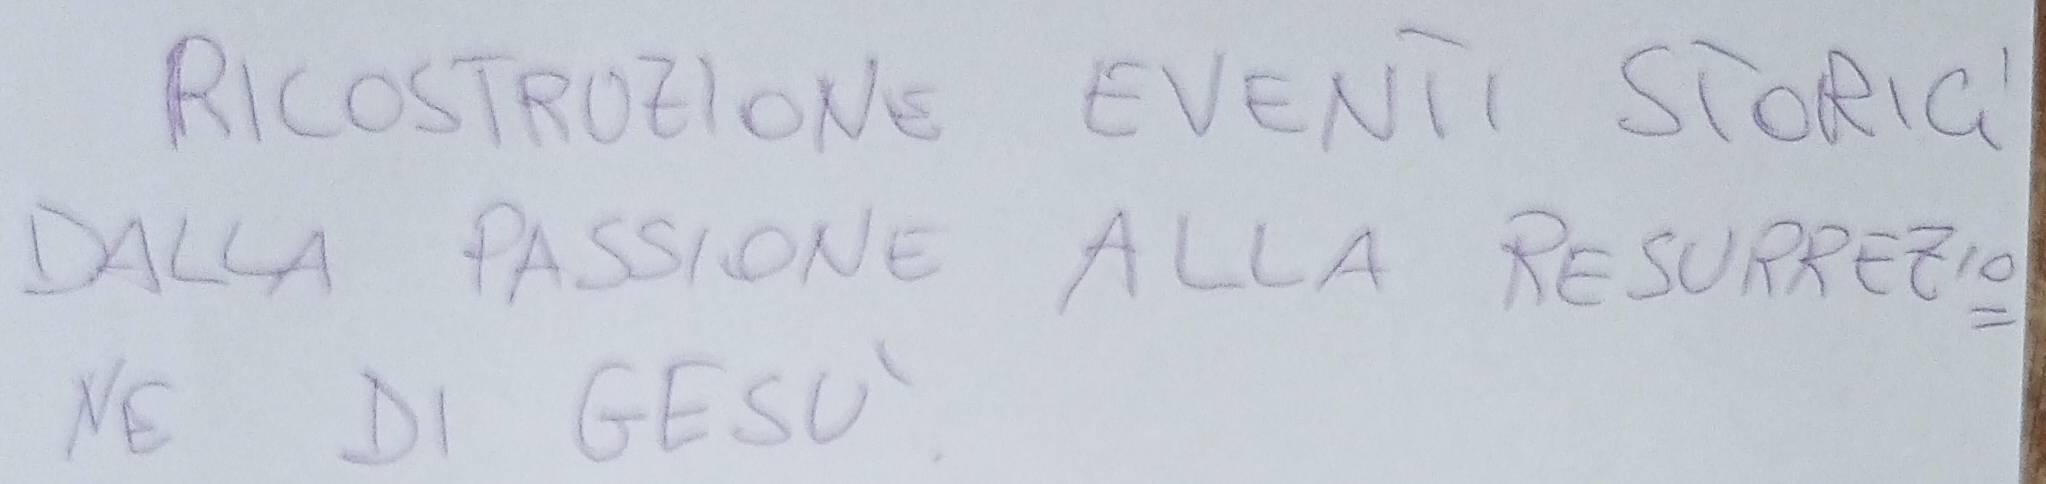 RICOSTRUZIONE EVENTI STORICI
DALLA PASSIONE ALLA RESURREZIO=
NE DI GESU'.